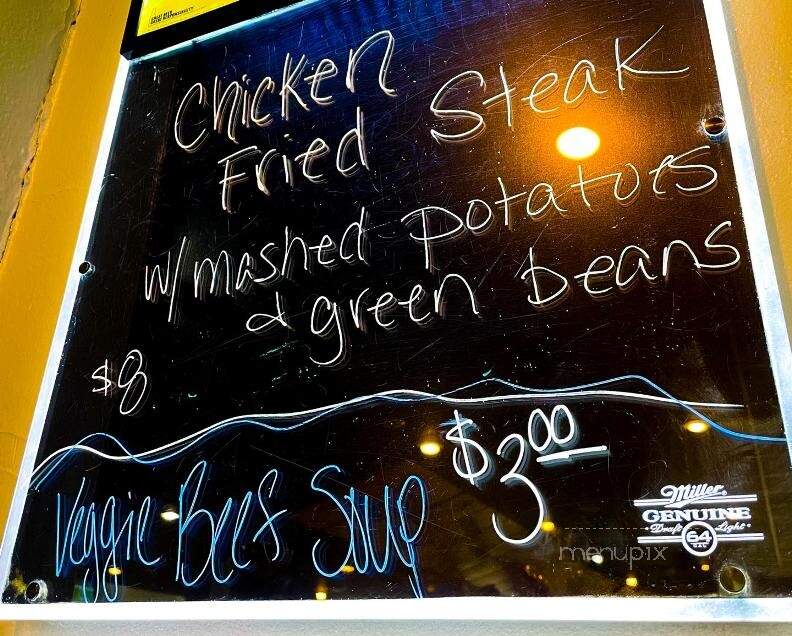 Chicken
Fried Steak
w/ mashed potatoes
& green beans
$8
Veggie Beef Soup $3.00
Miller
GENUINE
Draft Light
64
menupix